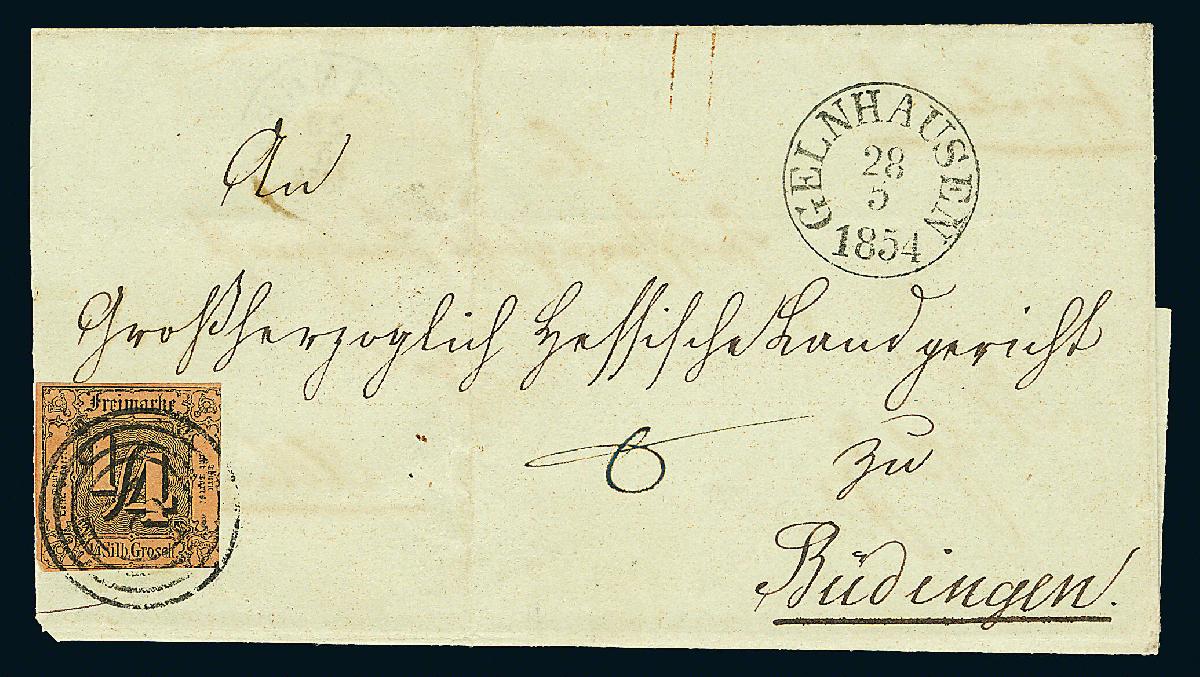 An
GELNHAUSEN
28
5
1854
Großherzoglich Hessische Landgericht
zu
Büdingen.
Freimarke
1/4
1/4 Silb. Grosch.